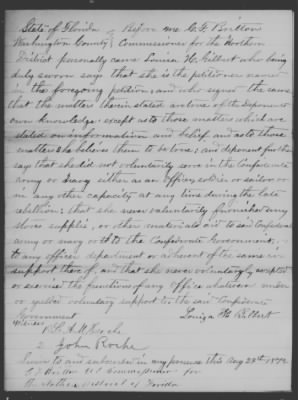 State of Florida } Before me C. F. Britton
Washington County } Commissioner for the Northern
District personally came Louisa H. Gilbert who being
duly sworn says that she is the petitioner named
in the foregoing petition, and who signed the same
that the matters therein stated are true of the Deponents
own knowledge; except as to those matters which are
stated on information and belief and as to those
matters she believes them to be true; and deponent further
says that she did not voluntarily serve in the Confederate
army or navy either as an officer, soldier or sailor or
in any other capacity at any time during the late
rebellion; that she never voluntarily furnished any
stores supplies, or other material aid to said Confederate
army or navy or to the Confederate Government,
to any officer department or adherent of the same in
support thereof, and that she never voluntarily accepted
or exercised the functions of any office whatsoever under
or yielded voluntary support to the said Confederate
Government
Louiza H Gilbert
Witness
2 John Roche
Sworn to and subscribed in my presence this Aug 28th 187
C F Britton U S Commissioner for
the Northern District of Florida